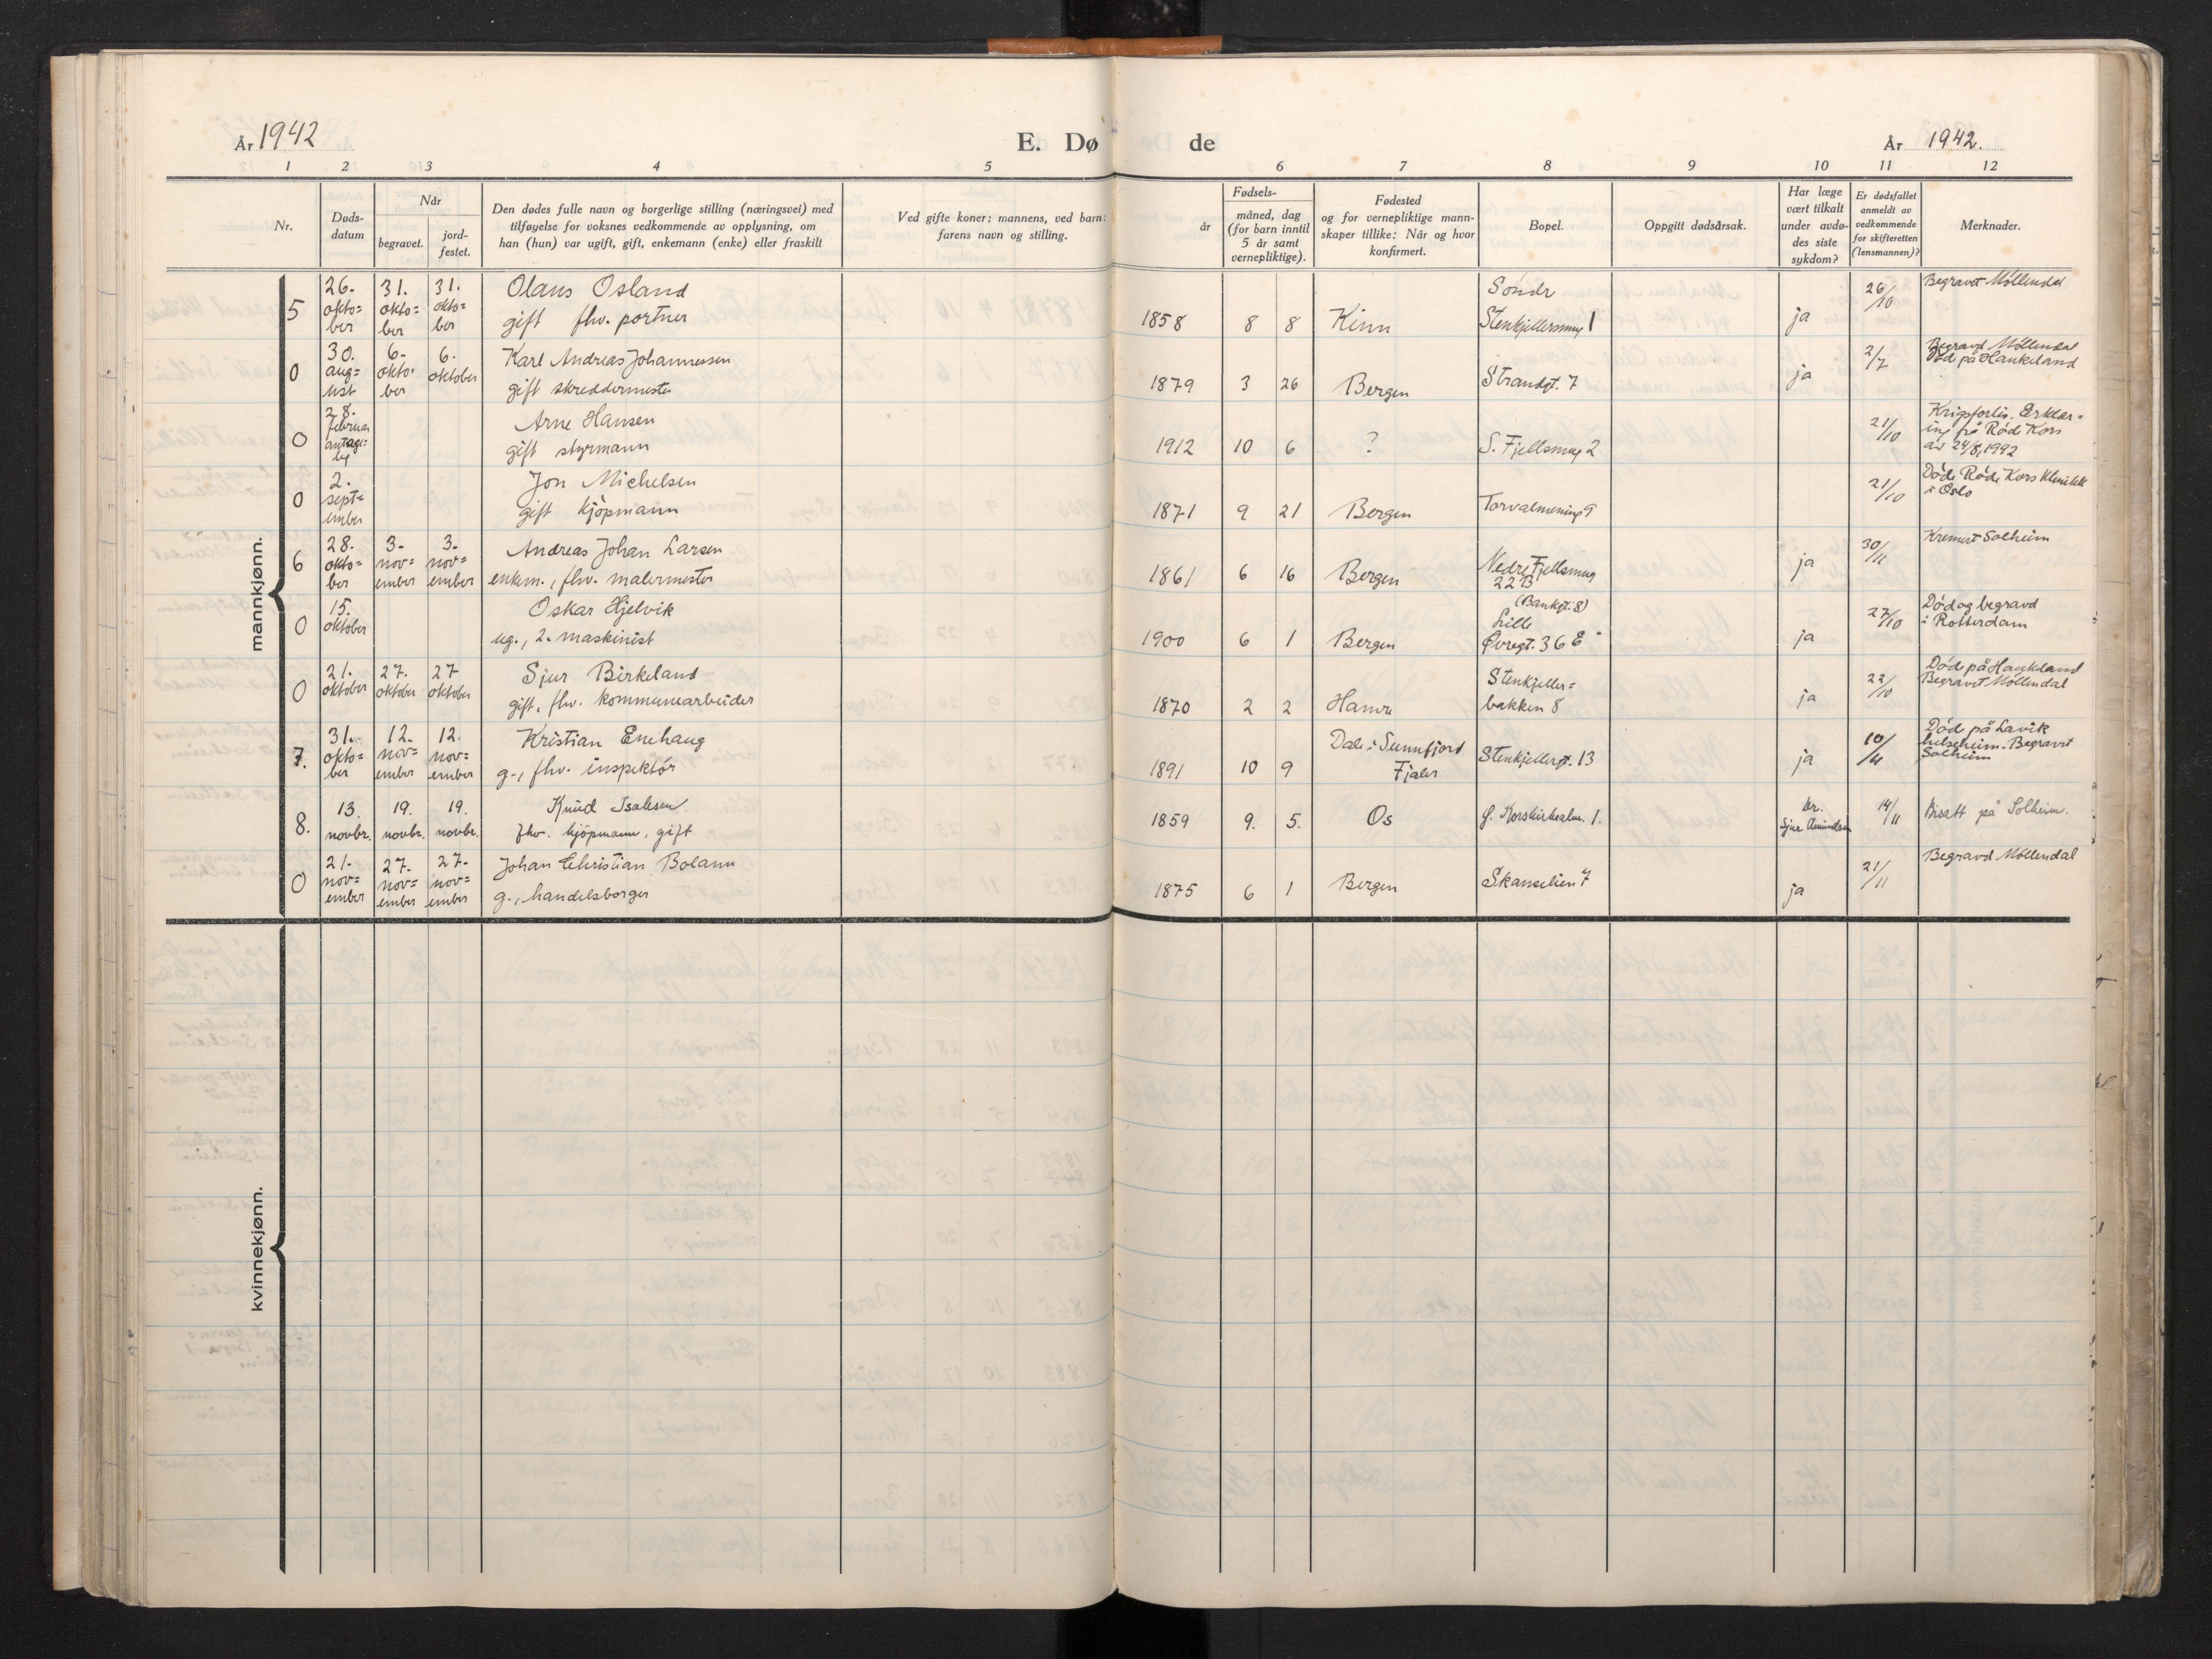 År 1942
E. Dø de
År 1942.
1 2 3 4 5 6 7 8 9 10 11 12
Nr.
Døds-
datum
Når
begravet.
jord-
festet.
Den dødes fulle navn og borgerlige stilling (næringsvei) med
tilføyelse for voksnes vedkommende av opplysning, om
han (hun) var ugift, gift, enkemann (enke) eller fraskilt
Ved gifte koner: mannens, ved barn:
farens navn og stilling.
år
Fødsels-
måned, dag
(for barn inntil
5 år samt
vernepliktige).
Fødested
og for vernepliktige mann-
skaper tillike: Når og hvor
konfirmert.
Bopel.
Oppgitt dødsårsak.
Har læge
vært tilkalt
under avdø-
des siste
sykdom?
Er dødsfallet
anmeldt av
vedkommende
for skifteretten
(lensmannen)?
Merknader.
mannkjønn.
5
26.
okto=
ber
31.
okto=
ber
31.
okto=
ber
Olaus Osland
gift fhv. portner
1858 8 8 Kinn
Söndr
Stenkjellersmug 1
ja
26/10
Begravet Möllendal
0
30.
aug=
ust
6.
okto=
ber
6.
oktober
Karl Andreas Johannessen
gift skreddermester
1879 3 26 Bergen
Strandgt. 7
ja
2/7
Begravd Möllendal
Död på Haukeland
0
28.
februar
antage=
lig
Arne Hansen
gift styrmann
1912 10 6 ?
S. Fjellsmug 2
21/10
Krigsforlis. Erklær=
ing på Röde Kors
av 24/8, 1942
0
2.
sept=
ember
Jon Michelsen
gift kjöpmann
1871 9 21 Bergen
Torvalmening 9
21/10
Döde Röde Kors Klinikk
i Oslo
6
28.
okto=
ber
3.
nov=
ember
3.
nov=
ember
Andreas Johan Larsen
enkem., fhv. malermester
1861 6 16 Bergen
Nedre Fjellsmug
22 B
ja
30/11
Kremert Solheim
0
15.
oktober
Oskar Hjelvik
ug., 2. maskinist
1900 6 1 Bergen
(Bankgt. 8)
Lille
Øvregt. 36 E
ja
27/10
Död og begravd
i Rotterdam
0
21.
oktober
27.
oktober
27
oktober
Sjur Birkeland
gift, fhv. kommunearbeider
1870 2 2 Hamre
Stenkjeller=
bakken 8
ja
22/10
Död på Haukland
Begravet Möllendal
7.
31.
okto=
ber
12.
nov=
ember
12.
nov=
ember
Kristian Enehaug
g., fhv. inspektör
1891 10 9
Dale i Sunnfjord
Fjaler
Stenkjellergt. 13
ja
10/11
Död på Lavik
helseheim. Begravet
Solheim
8.
13.
novbr.
19.
novbr.
19.
novbr.
Knud Isaksen
fhv. kjöpmann, gift
1859 9. 5. Os
Korskirkealm. 1.
Dr.
Sjur Amundsen
14/11
Bisatt på Solheim.
0
21.
nov=
ember
27.
nov=
ember
27.
nov=
ember
Johan Christian Bolann
g., handelsborger
1875 6 1 Bergen
Skanselien 7
ja
21/11
Begravd Möllendal
kvinnekjønn.